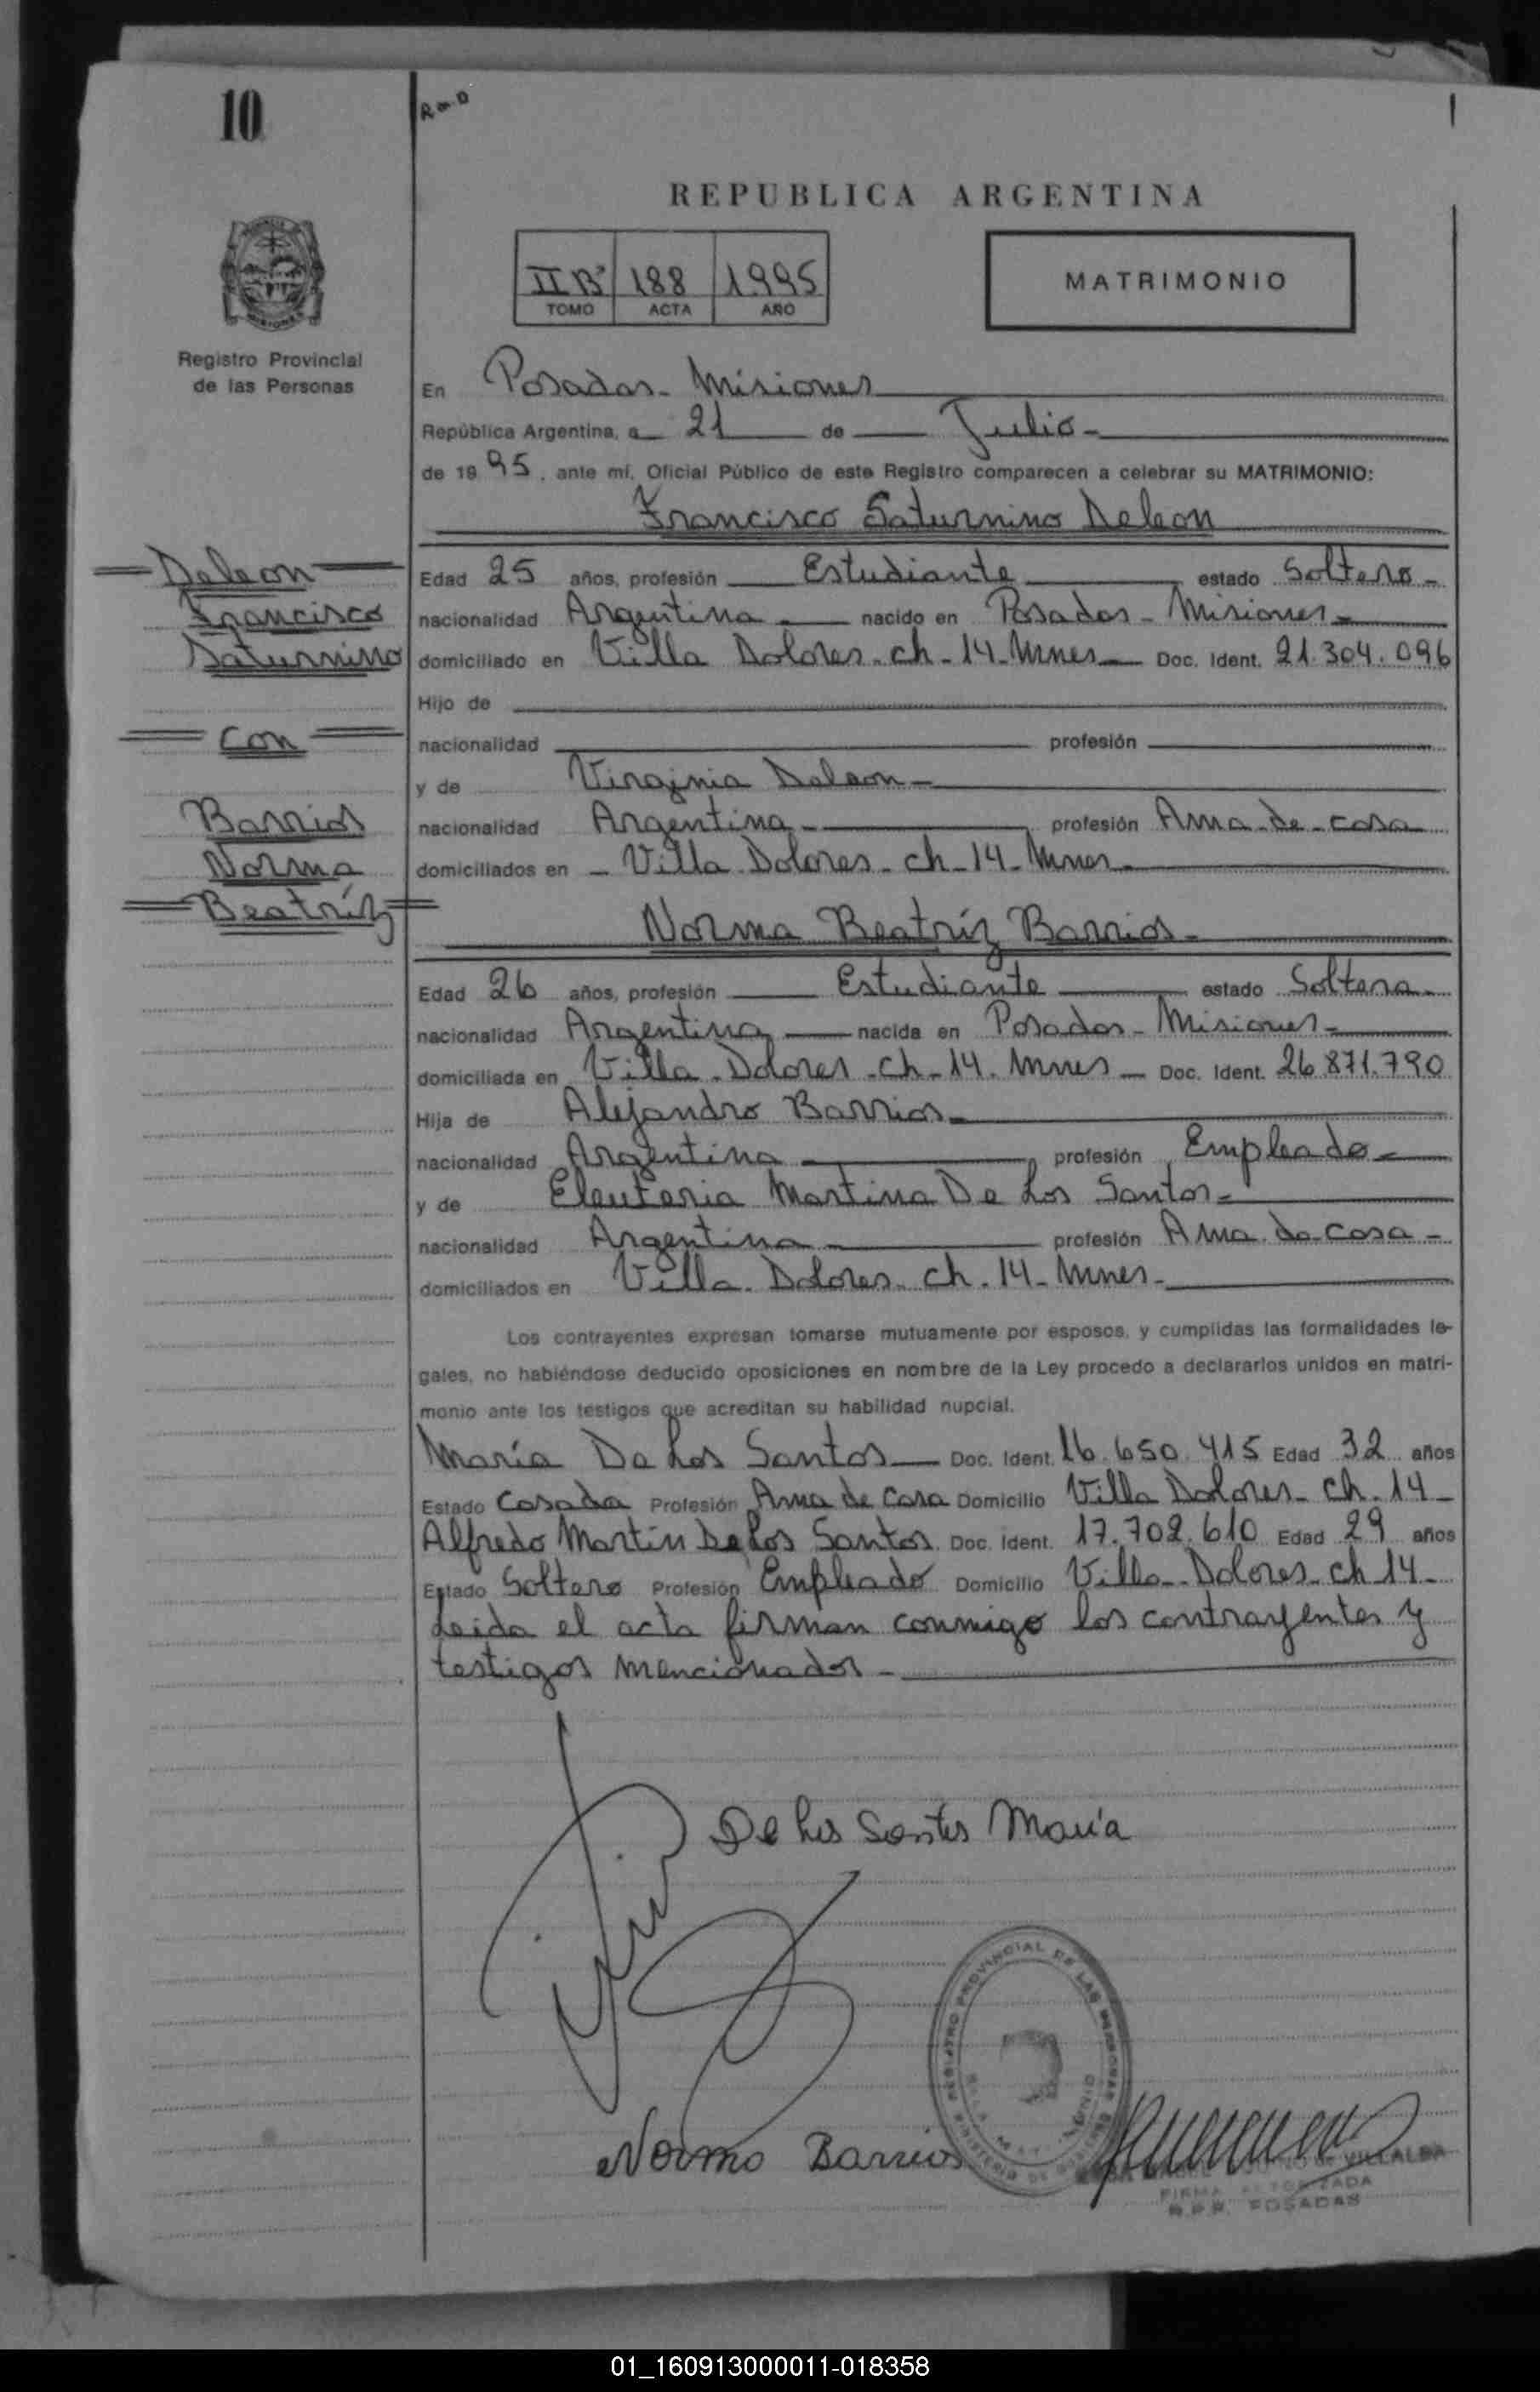 10
R=0
REPUBLICA ARGENTINA
II Bº 188 1995
TOMO ACTA AÑO
MATRIMONIO
Registro Provincial
de las Personas
En Posadas - Misiones
República Argentina, a 21 de Julio -
de 19 95, ante mí, Oficial Público de este Registro comparecen a celebrar su MATRIMONIO:
Francisco Saturnino Deleon
Deleon
Francisco
Saturnino
Con
Barrios
Norma
Beatríz
Edad 25 años, profesión Estudiante estado Soltero -
nacionalidad Argentina nacido en Posadas - Misiones -
domiciliado en Villa Dolores - ch - 14 - Mnes - Doc. Ident. 21.304.096
Hijo de
nacionalidad profesión
y de Virginia Deleon -
nacionalidad Argentina - profesión Ama - de - casa
domiciliados en - Villa Dolores - ch - 14 - Mnes -
Norma Beatríz Barrios -
Edad 26 años, profesión Estudiante estado Soltera -
nacionalidad Argentina nacida en Posadas - Misiones -
domiciliada en Villa - Dolores - ch - 14 - Mnes - Doc. Ident. 26.871.790
Hija de Alejandro Barrios -
nacionalidad Argentina profesión Empleado -
y de Eleuteria Martina De Los Santos -
nacionalidad Argentina profesión Ama - de - casa -
domiciliados en Villa - Dolores - ch - 14 - Mnes -
Los contrayentes expresan tomarse mutuamente por esposos, y cumplidas las formalidades le-
gales, no habiéndose deducido oposiciones en nombre de la Ley procedo a declararlos unidos en matri-
monio ante los testigos que acreditan su habilidad nupcial.
María De Los Santos Doc. Ident. 16.650.415 Edad 32 años
Estado Casada Profesión Ama de Casa Domicilio Villa Dolores - ch - 14 -
Alfredo Martín De Los Santos Doc. Ident. 17.702.610 Edad 29 años
Estado Soltero Profesión Empleado Domicilio Villa - Dolores - ch 14 -
Leida el acta firman conmigo los contrayentes y
testigos mencionados -
De Los Santos María
REGISTRO PROVINCIAL DE LAS PERSONAS
MINISTERIO DE GOBIERNO
Norma Barrios
DE VILLALBA
FIRMA AUTORIZADA
R.P.P. POSADAS
01_160913000011-018358